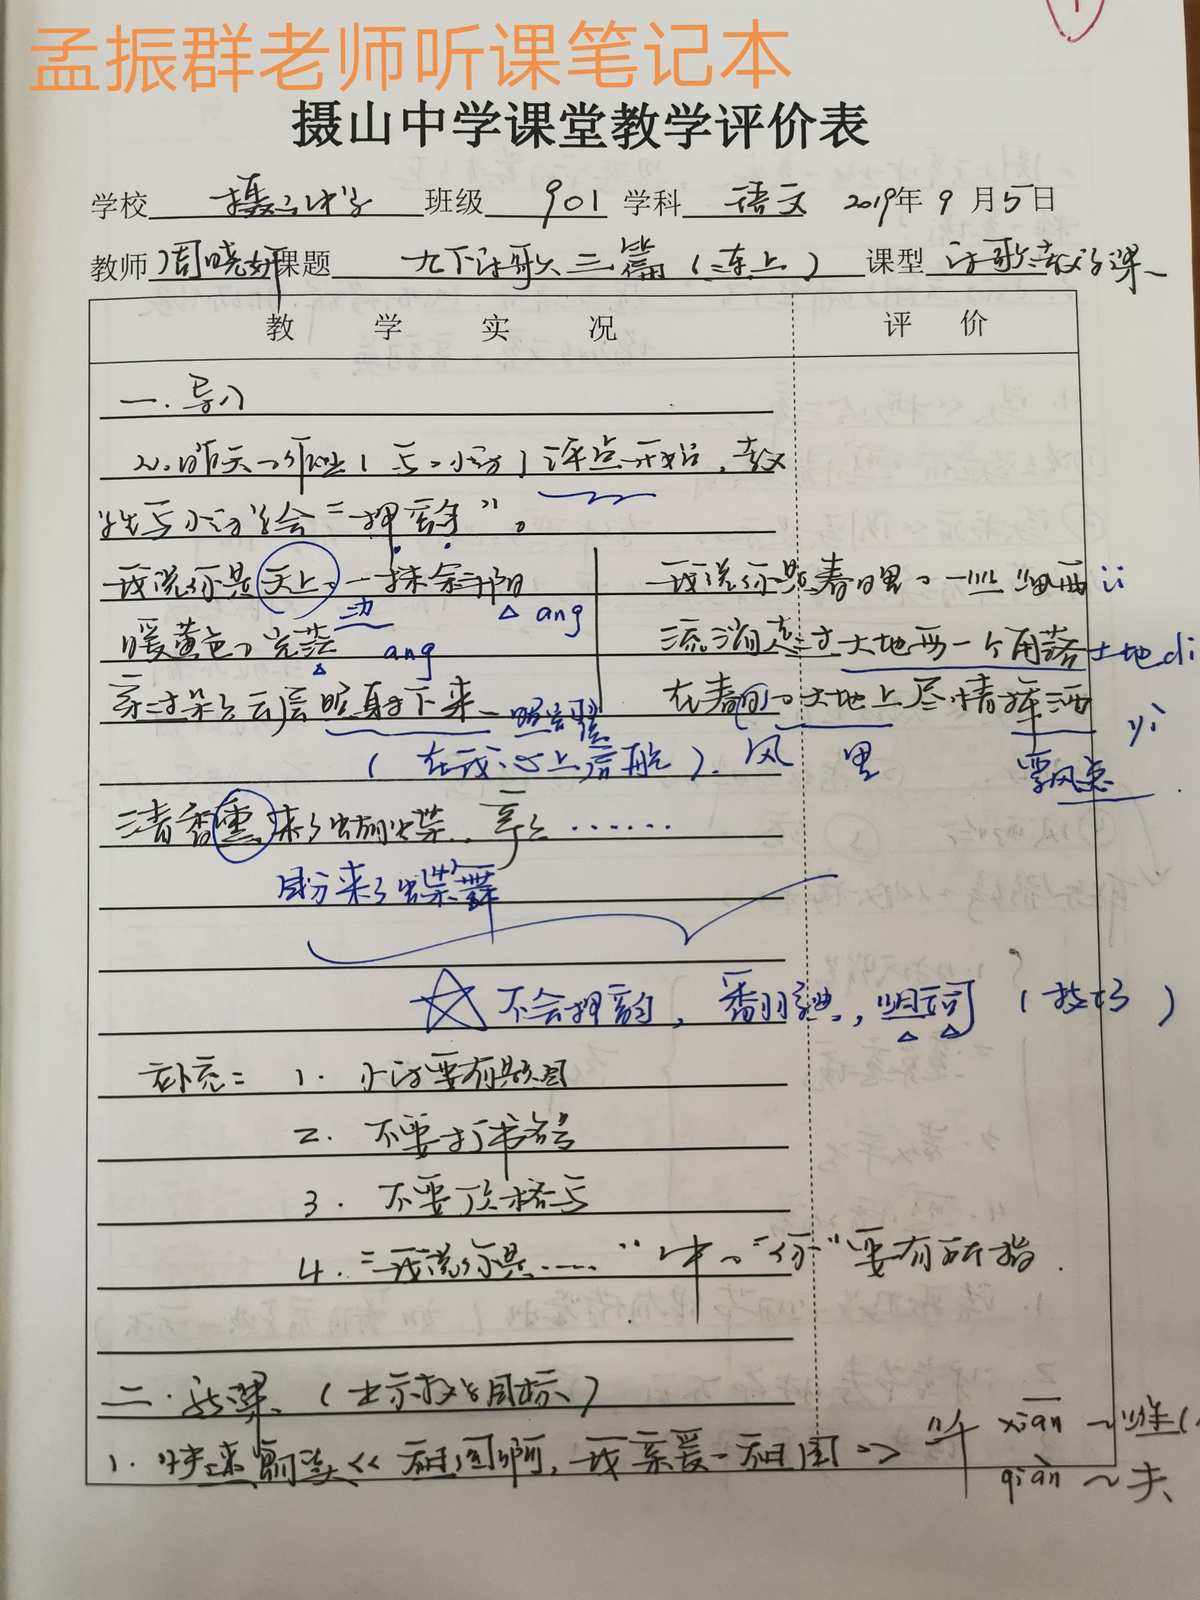 孟振群老师听课笔记本
摄山中学课堂教学评价表
学校 摄山中学 班级 901 学科 语文 2019年9月5日
教师 周晓妍 课题 九下诗歌三篇(连上) 课型 诗歌教读课
教 学 实 况 评 价
一.导入
从昨天的作业(写小诗)评点开始,教
学生写小诗学会“押韵”。
我说你是天上的一抹余阳 我说你是春日里的一丝细雨 ii
边 ang
暖黄色的光芒 ang 流淌过大地的一个角落 土地 di
亲过朵朵云层照身下来 在春的大地上尽情挥洒 yi
(在我心上启航). 风 里 飘
清香熏来了蝴蝶,……
引来了蝶舞
☆不会押韵,翻字典,归韵(技巧)
补充: 1. 小诗要有题目
2. 不要打书名号
3. 不要顶格写
4. “我说你是……”中的“你”要有所指.
二.新课(出示教学目标)
1. 快速朗读《祖国啊,我亲爱的祖国》 纤 xiān ~维(
qiàn ~夫